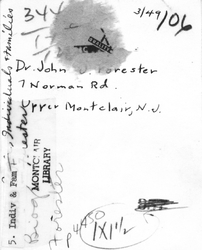 344
3/49/06
Dr. John J. Forester
7 Norman Rd.
Upper Montclair, N.J.
MONTCLAIR
LIBRARY
5. Indiv & Fam
Individuals & families
Forester
p 4450
1X1½